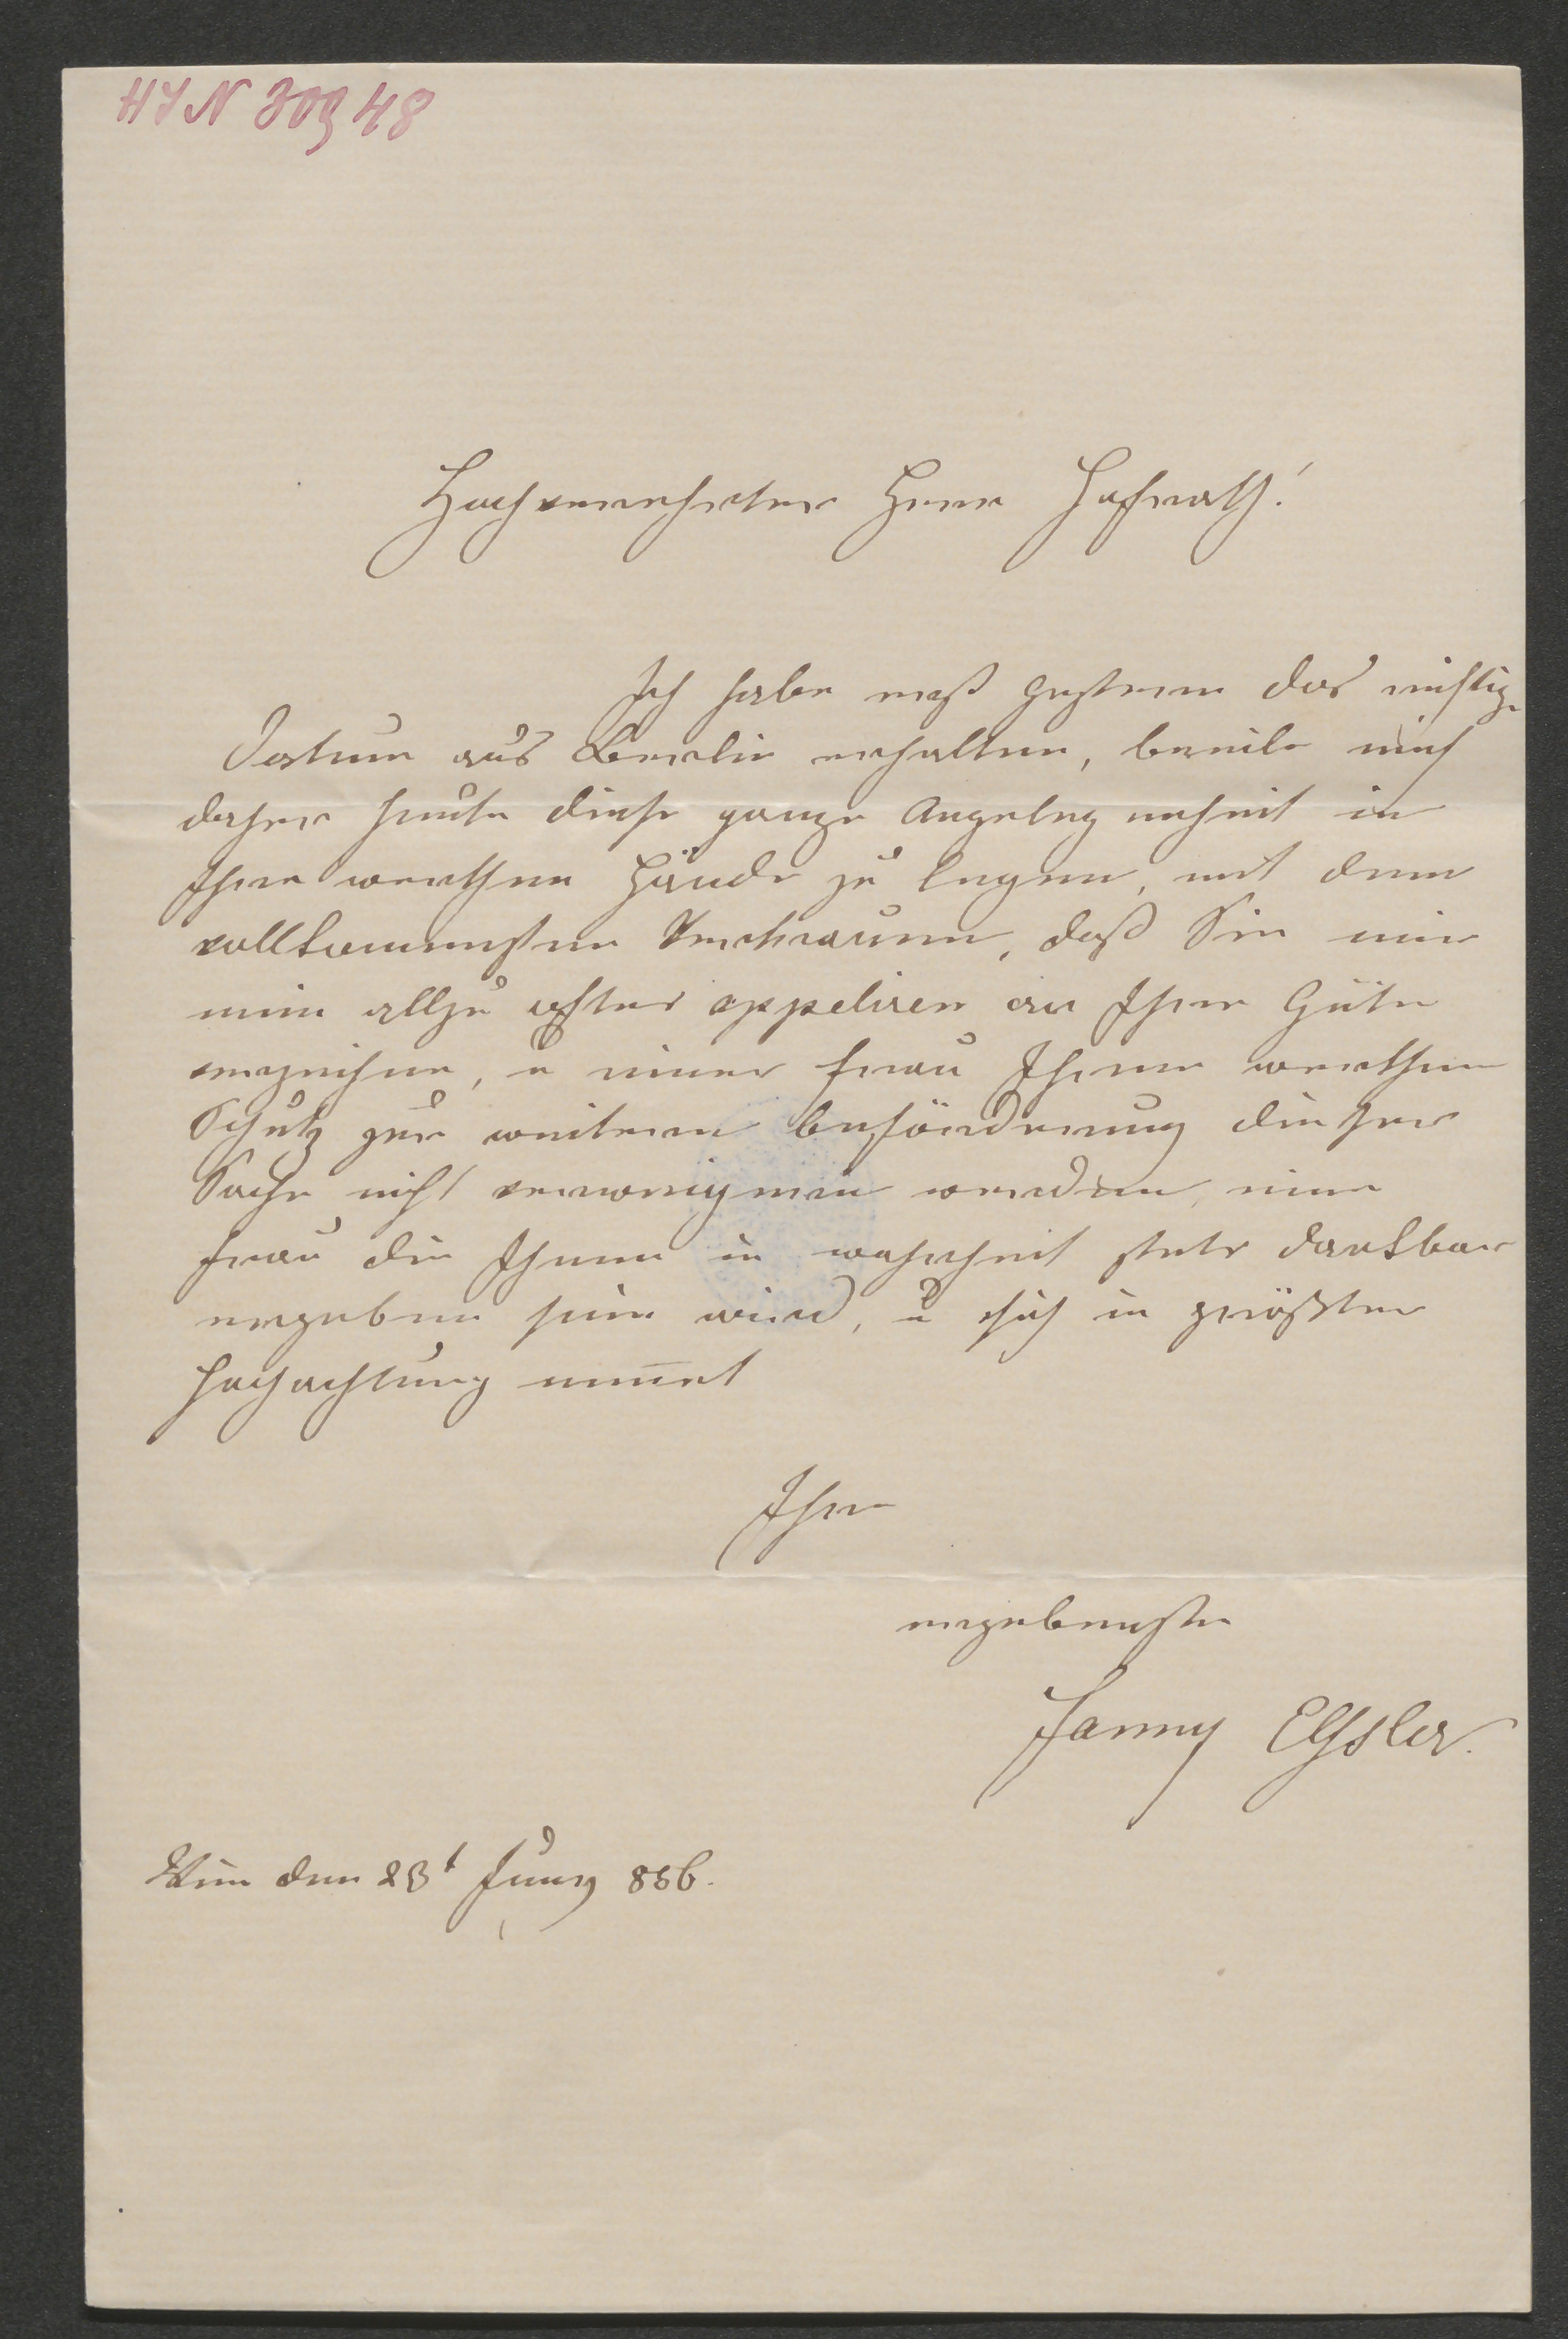 HIN 30948
Hochverehrter Herr Hofrath!
Ich habe erst gestern das richtige
Datum aus Berlin erhalten, beeile mich
daher heute diese ganze Angelegenheit in
Ihre werthen Hände zu legen, mit dem
vollkommensten Vertrauen, daß Sie mir
mein allzu öfter appeliren an Ihre Güte
verzeihen, u einer Frau Ihren werthen
Schutz zur weiteren beförderung dieser
Sache nicht verweigern werden, eine
Frau die Ihnen in wahrheit stets dankbar
ergeben sein wird, u sich in größter
Hochachtung nennt
Ihre
ergebenste
Fanny Elßler.
Wien den 23t Juny 886.